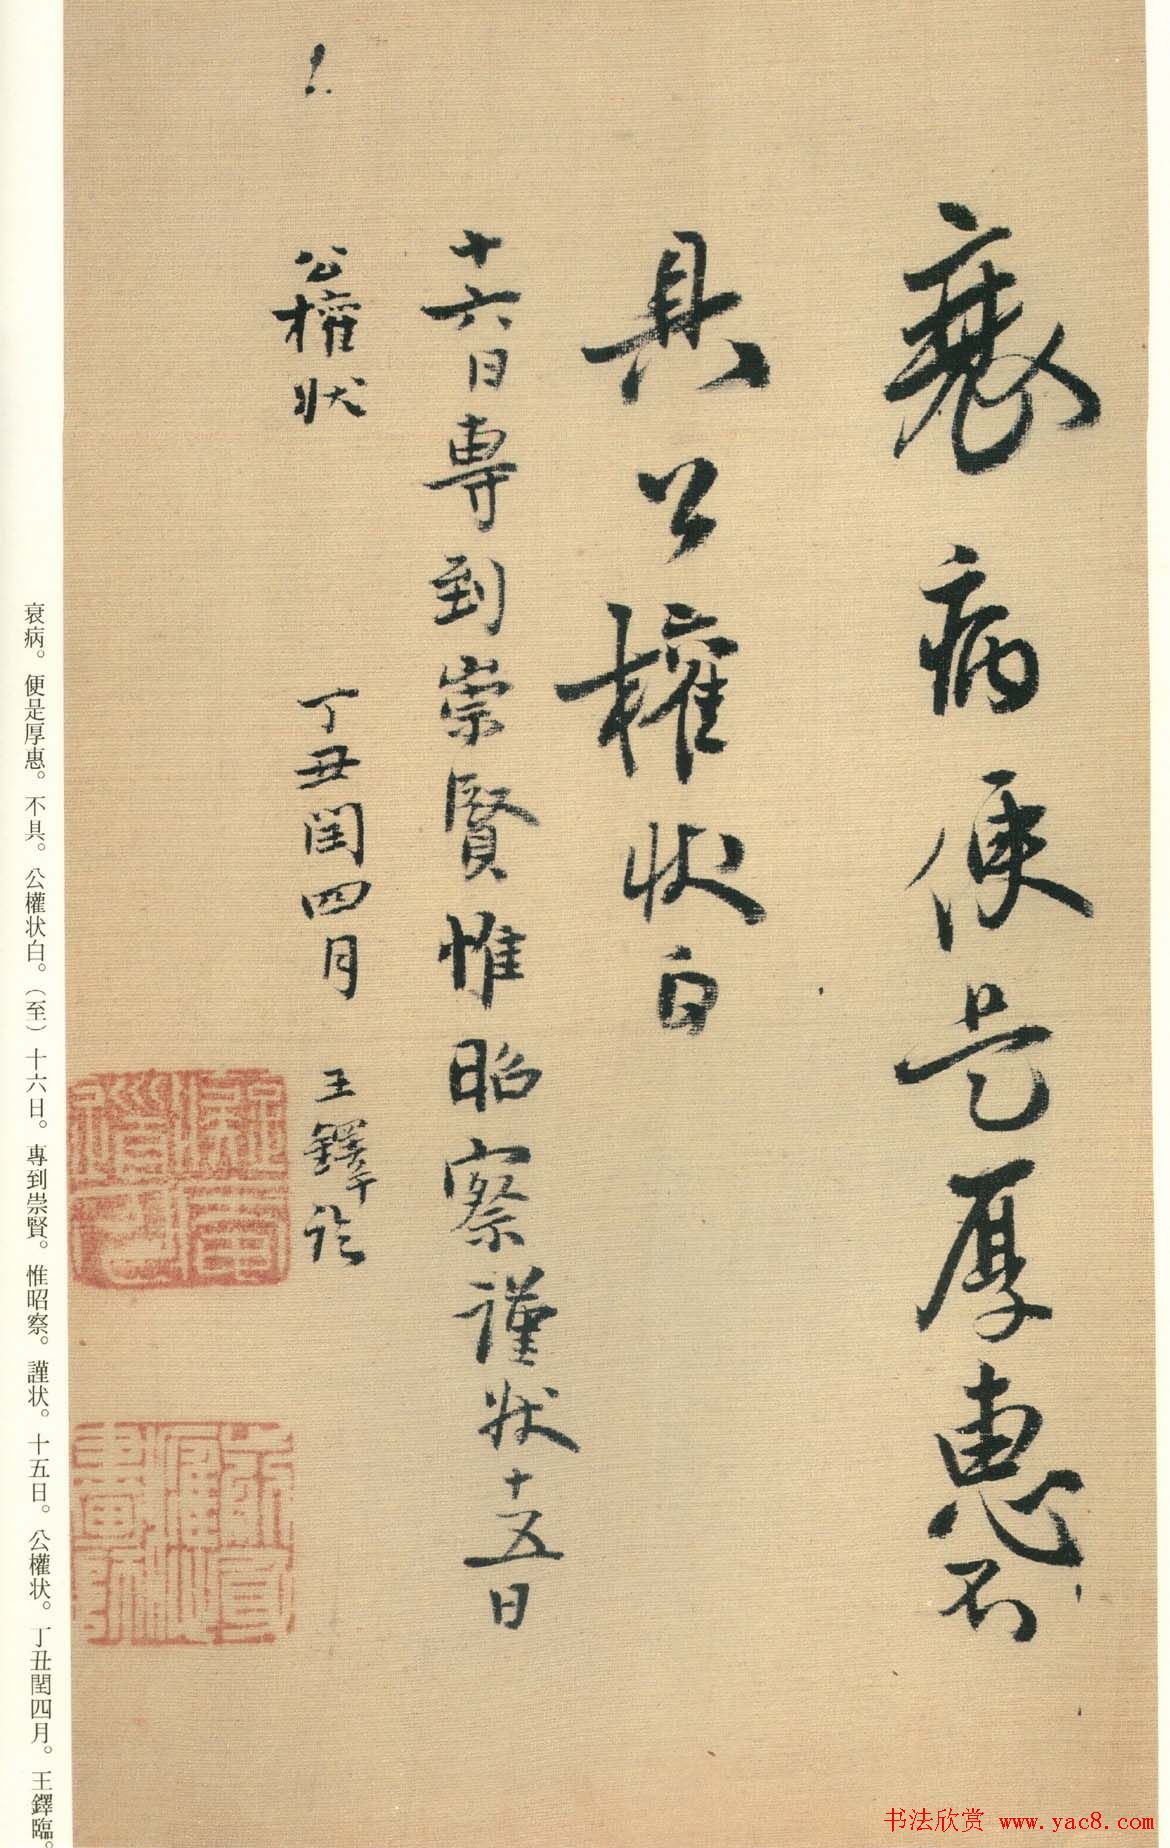 衰病便是厚惠不
具公權状白
十六日專到崇賢惟昭察謹状十五日
公權状
丁丑閏四月 王鐸臨
衰病。便是厚惠。不具。公權状白。（至）十六日。專到崇賢。惟昭察。謹状。十五日。公權状。丁丑閏四月。王鐸臨。
书法欣赏 www.yac8.com